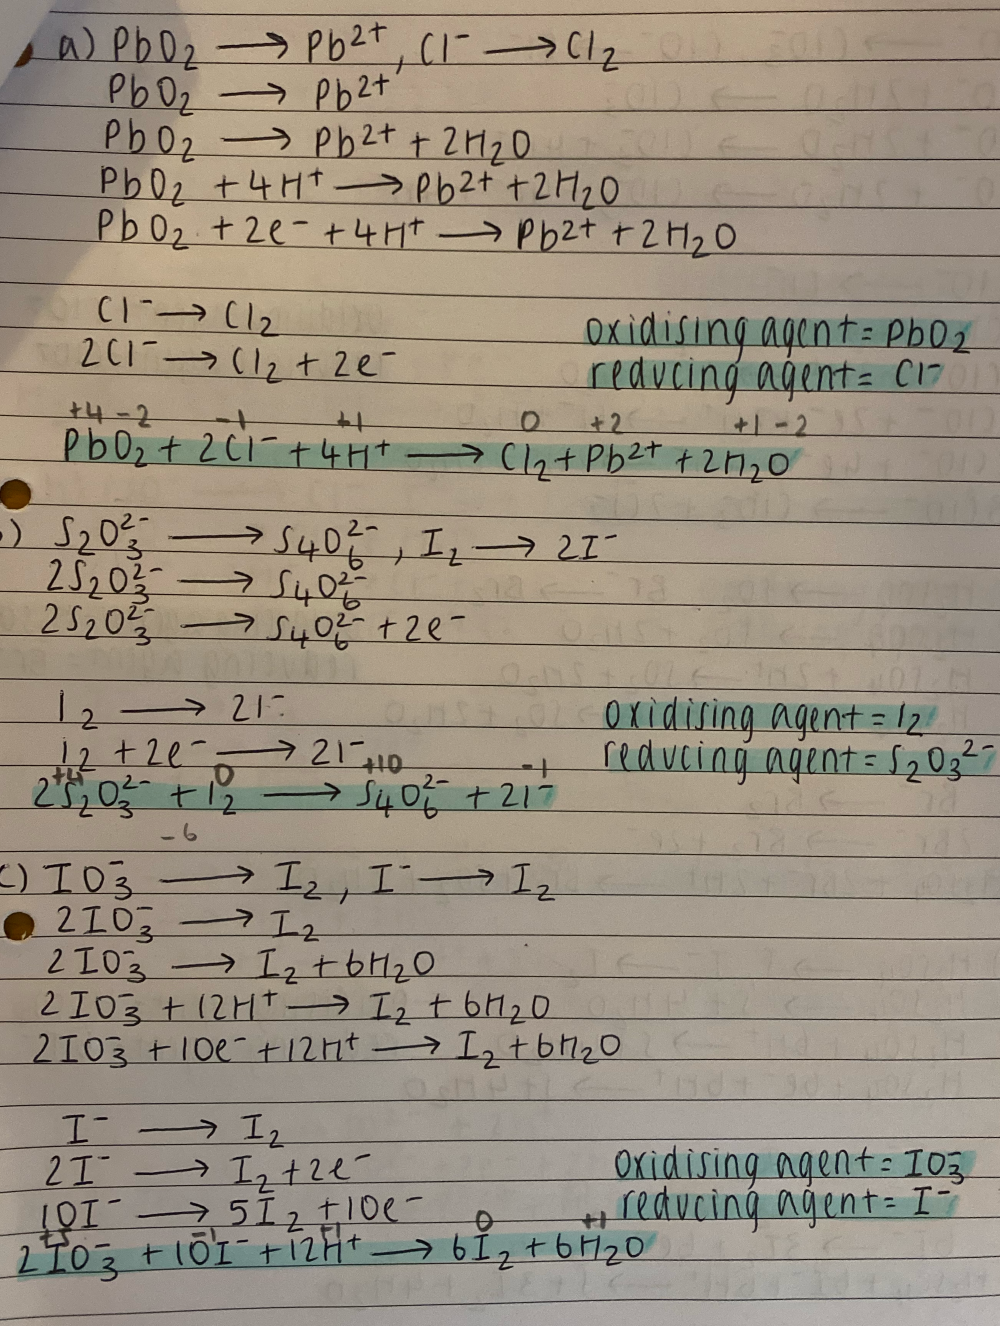 a) PbO₂ ⟶ Pb²⁺, Cl⁻ ⟶ Cl₂
PbO₂ ⟶ Pb²⁺
PbO₂ ⟶ Pb²⁺ + 2H₂O
PbO₂ + 4H⁺ ⟶ Pb²⁺ + 2H₂O
PbO₂ + 2e⁻ + 4H⁺ ⟶ Pb²⁺ + 2H₂O
Cl⁻ ⟶ Cl₂
oxidising agent = PbO₂
2Cl⁻ ⟶ Cl₂ + 2e⁻
reducing agent = Cl⁻
+4 -2 -1 +1 0 +2 +1 -2
PbO₂ + 2Cl⁻ + 4H⁺ ⟶ Cl₂ + Pb²⁺ + 2H₂O
) S₂O₃²⁻ ⟶ S₄O₆²⁻, I₂ ⟶ 2I⁻
2S₂O₃²⁻ ⟶ S₄O₆²⁻
2S₂O₃²⁻ ⟶ S₄O₆²⁻ + 2e⁻
I₂ ⟶ 2I⁻
oxidising agent = I₂
I₂ + 2e⁻ ⟶ 2I⁻
reducing agent = S₂O₃²⁻
+4 0 +10 -1
2S₂O₃²⁻ + I₂ ⟶ S₄O₆²⁻ + 2I⁻
-6
c) IO₃⁻ ⟶ I₂, I⁻ ⟶ I₂
2IO₃⁻ ⟶ I₂
2IO₃⁻ ⟶ I₂ + 6H₂O
2IO₃⁻ + 12H⁺ ⟶ I₂ + 6H₂O
2IO₃⁻ + 10e⁻ + 12H⁺ ⟶ I₂ + 6H₂O
I⁻ ⟶ I₂
2I⁻ ⟶ I₂ + 2e⁻
oxidising agent = IO₃⁻
10I⁻ ⟶ 5I₂ + 10e⁻
reducing agent = I⁻
+5 -1 +1 0 +1
2IO₃⁻ + 10I⁻ + 12H⁺ ⟶ 6I₂ + 6H₂O